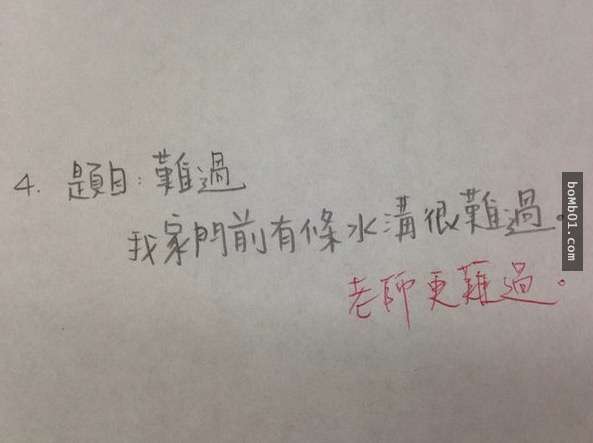 4. 題目:難過
我家門前有條水溝很難過。
老師更難過。
boMb01.com